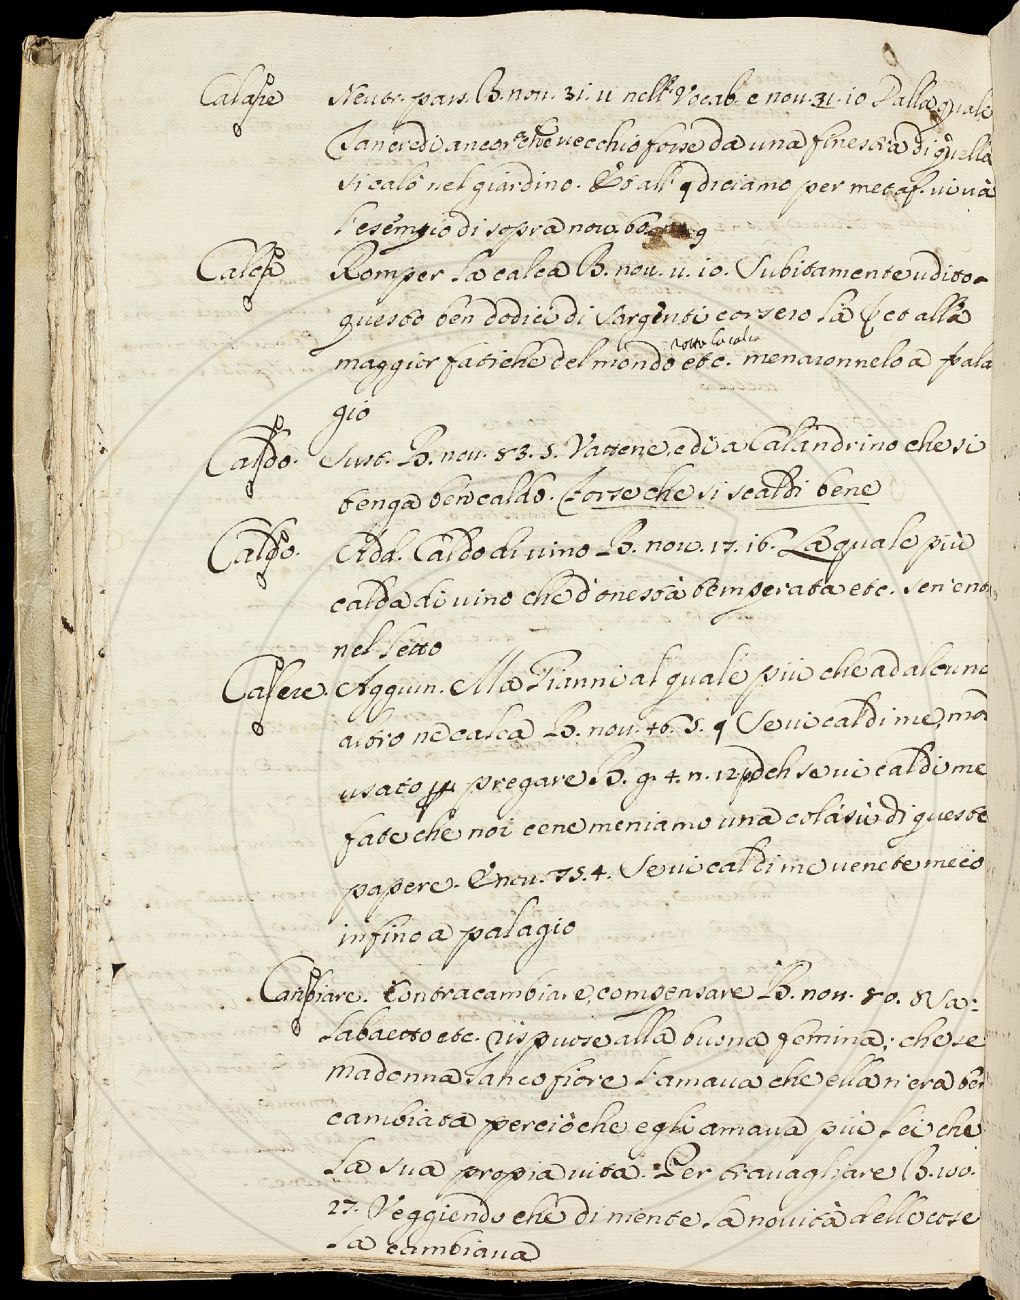 Calare Neutr. pass. B. nov. 31. 11 nell Vocab. e nov. 31. 10 Dalla quale
Tancredi ancorchè vecchio forse da una finestra di quella
si calò nel giardino. Et all' diciamo per metaf. vi và
l'esempio di sopra nov. 60. 9
Calca Romper la calca B. nov. 11. 10. Subitamente udito
questo ben dodici di Sargenti corsero là et alla
maggior fatiche del mondo rotta la calca etc. menaronnelo a pala
gio
Caldo. Sust. B. nov. 83. 5. Vattene, e di a Calandrino che si
tenga ben caldo. Forse che si scaldi bene
Caldo. Add. Caldo di vino B. nov. 17. 16. La quale più
calda di vino che d'onestà temperata etc. sen'entr
nel letto
Calere. Aggiun. Ma Gianni al quale più che ad alcuno
altro ne calea B. nov. 46. 5. Se vi cal di me, mo
usato pregare B. g. 4. n. 12 deh se vi cal di me
fate che noi cene meniamo una colà sù di queste
papere. E nov. 75. 4. Se vi cal di me venite meco
infino a palagio
Cambiare. Contracambiare, compensare B. nov. 80. 8 Sa:
labaetto etc. rispuose alla buona femina; che se
madonna Iancofiore l'amava che ella n'era ben
cambiata perciòche egli amava più lei che
la sua propia vita. Per travagliare B. 100.
27. Veggiendo che di mente la novità delle cose
la cambiava